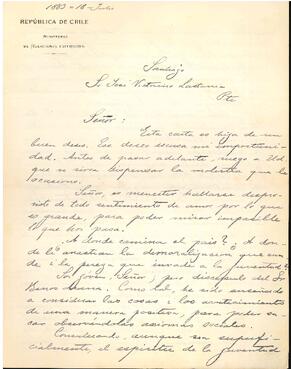 1883 - 18 - Julio
REPÚBLICA DE CHILE
MINISTERIO
DE RELACIONES EXTERIORES
Santiago
Sr. José Victorino Lastarria
Pte
Señor:
Esta carta es hija de un
buen deseo. Ese deseo escusa mi importuni-
dad. Antes de pasar adelante, ruego a Ud
que se sirva dispensar la molestia que le
ocasiono.
Señor, es menester hallarse despro-
visto de todo sentimiento de amor por lo que
es grande, para poder mirar impasible
lo que hoi pasa.
¿A donde camina el pais? ¿A don-
de le arrastran la desmoralizacion que cun-
de i la pereza que invade a la juventud?
Soi jóven, Señor, i soi discípulo del Sr
Barros Arana. Como tal, he sido enseñado
a considerar las cosas i los acontecimientos
de una manera positiva, para poder sa-
car observándolas axiomas sociales.
Considerando, aunque sea superfi-
cialmente, el espíritu de la juventud